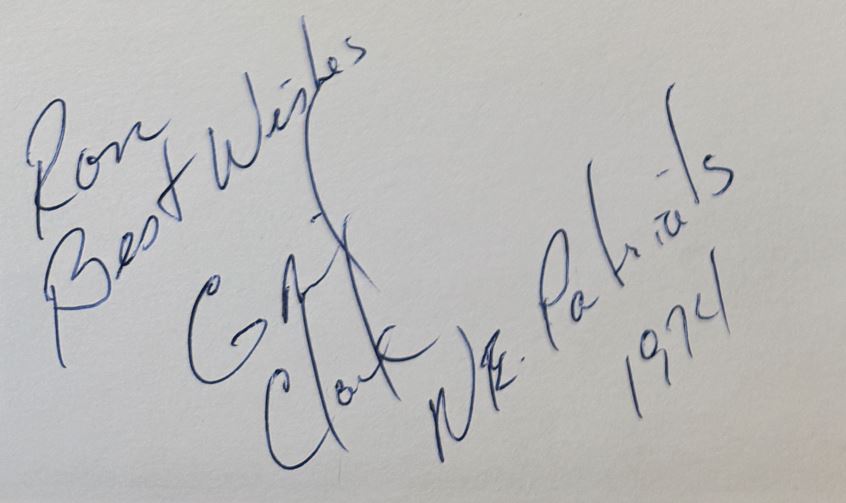 Ron
Best Wishes
Gail
Clark
N.E. Patriots
1974